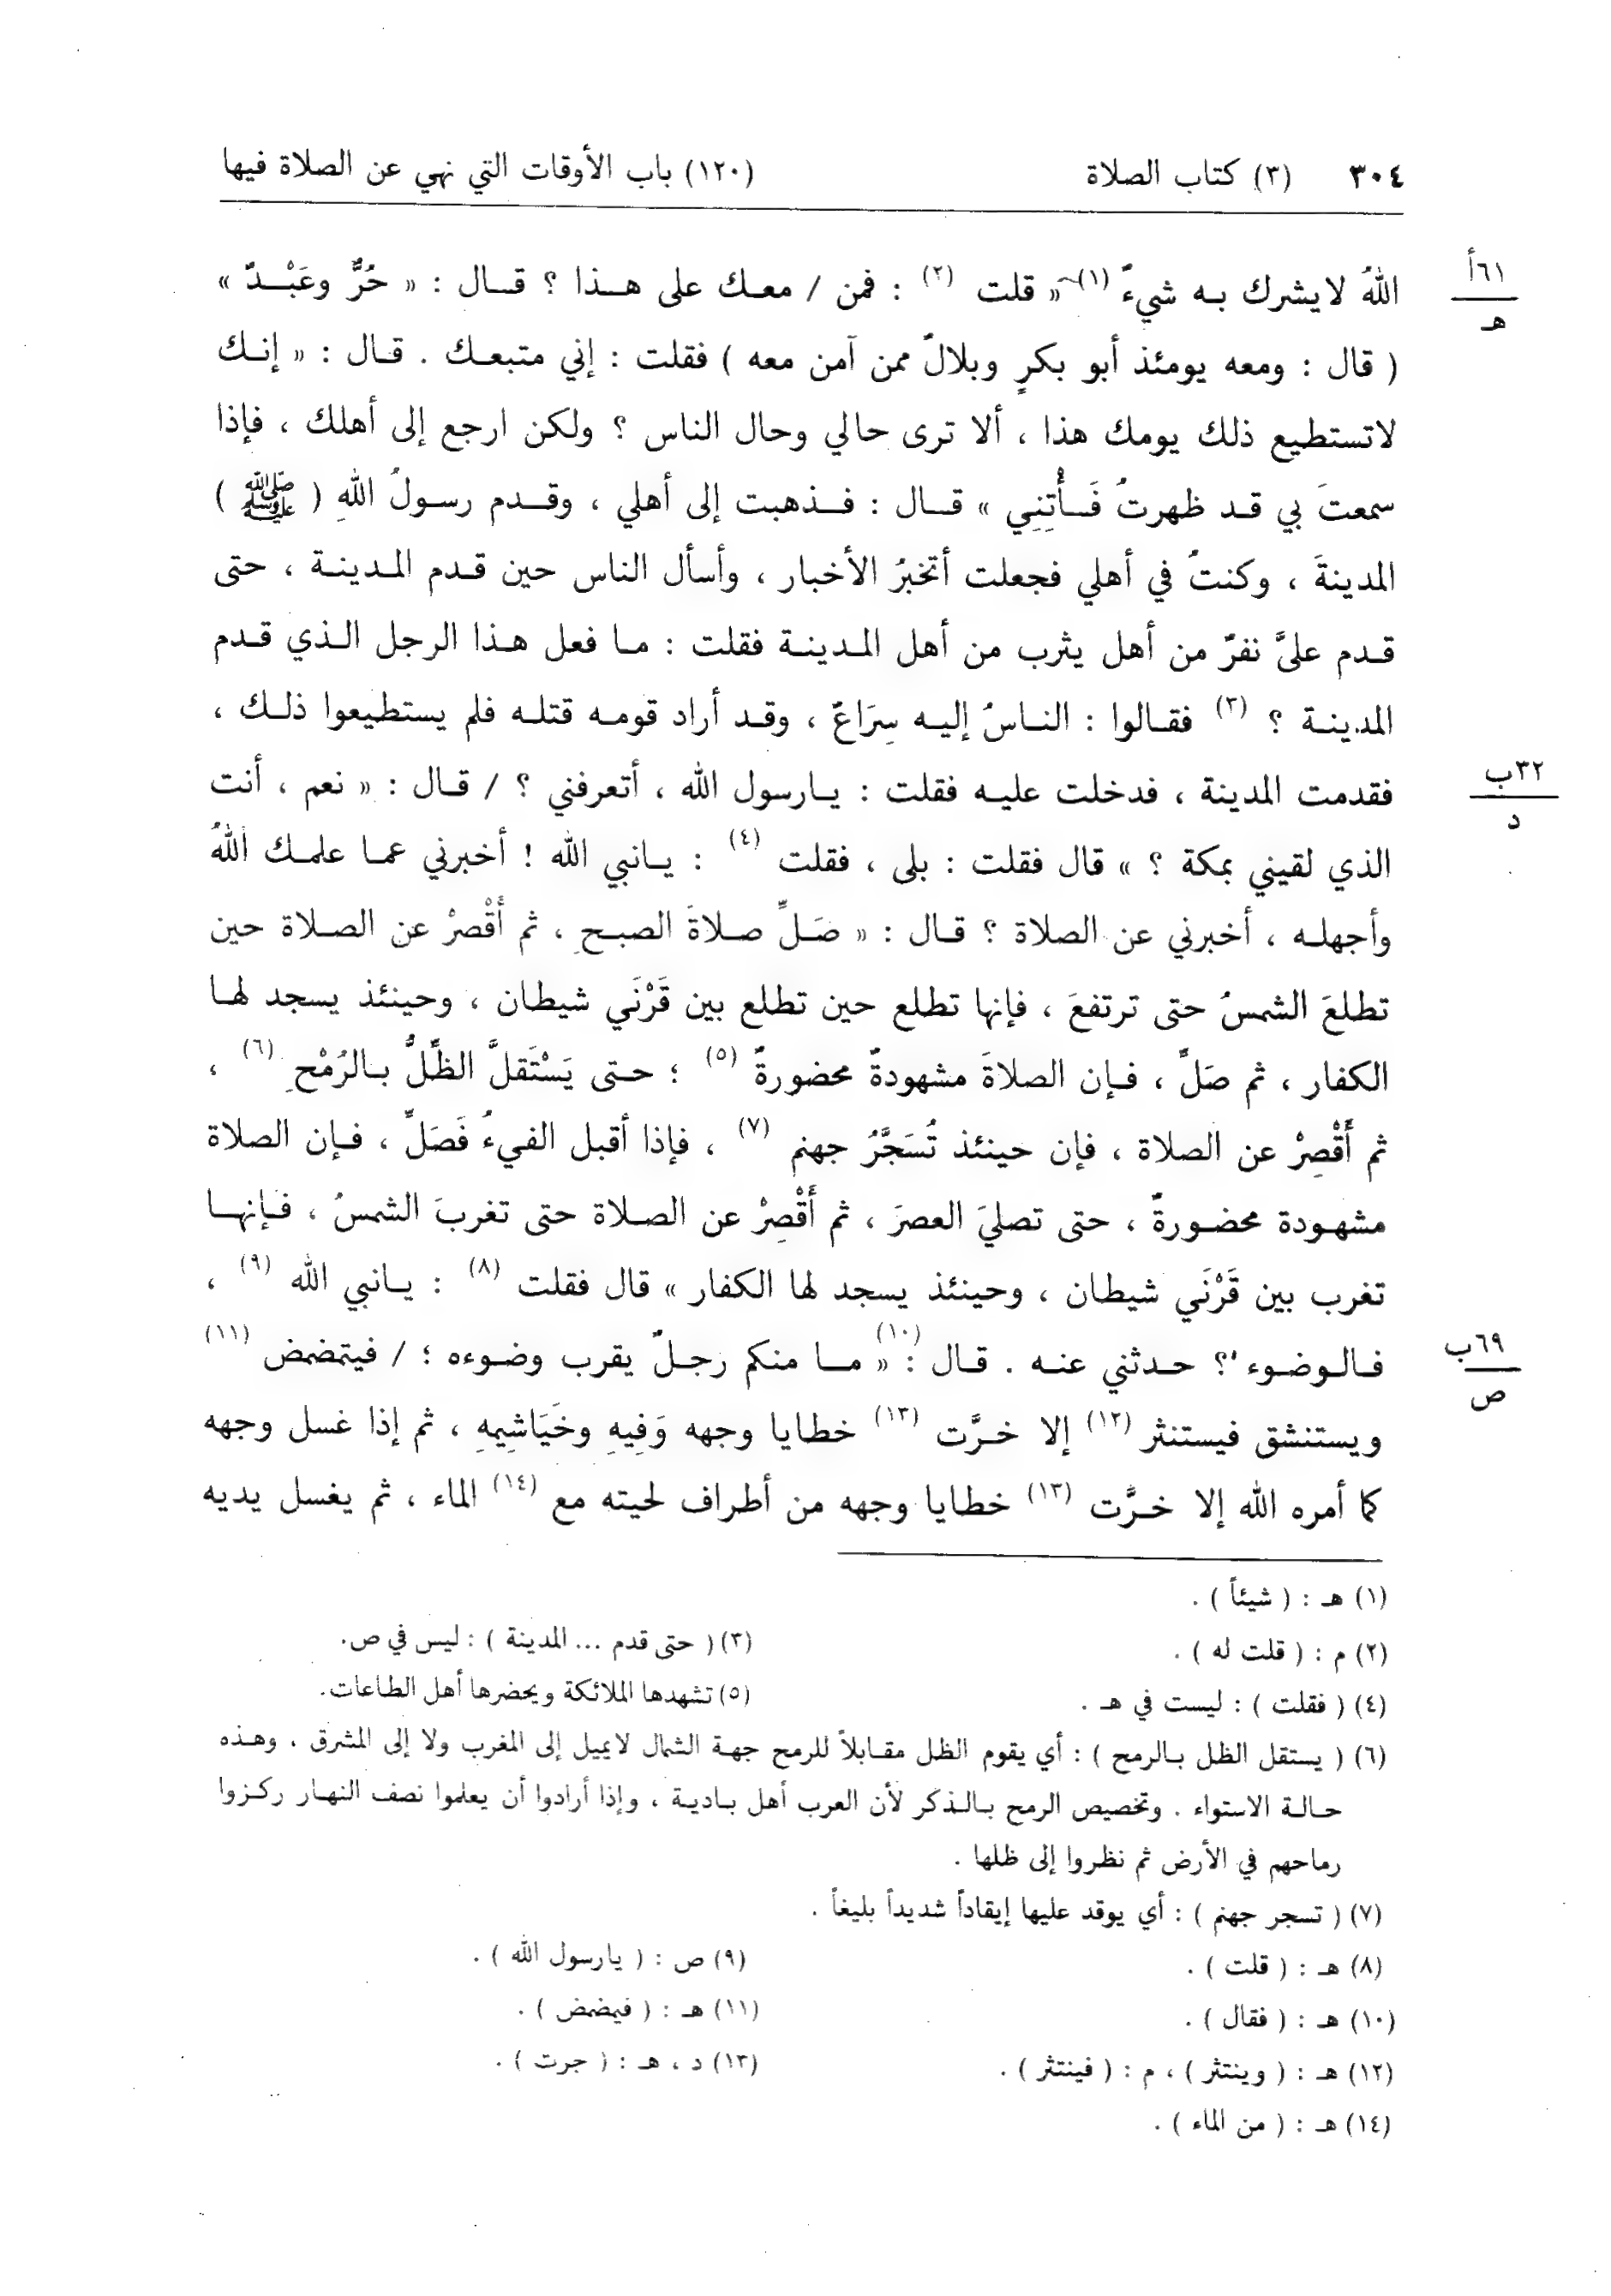 ٣٠٤ (٣) كتاب الصلاة (١٢٠) باب الأوقات التي نهي عن الصلاة فيها
اللهُ لايشرك بـه شيءٌ (١) » قلت (٢) : فمن / معـك على هـذا ؟ قـال : « حُرٌّ وعَبْـدٌ »
٦١أ
هـ
( قال : ومعه يومئذ أبو بكرٍ وبلالٌ ممن آمن معه ) فقلت : إني متبعـك . قـال : « إنـك
لاتستطيع ذلك يومك هذا ، ألا ترى حالي وحال الناس ؟ ولكن ارجع إلى أهلك ، فإذا
سمعتَ بي قـد ظهرتُ فَـأْتِنِي » قـال : فـذهبت إلى أهلي ، وقـدم رسـولُ اللهِ ( ﷺ )
المدينةَ ، وكنتُ في أهلي فجعلت أتخبرُ الأخبار ، وأسأل الناس حين قـدم المـدينـة ، حتى
قـدم عليَّ نفرٌ من أهل يثرب من أهل المـدينـة فقلت : مـا فعل هـذا الرجل الـذي قـدم
المدينـة ؟ (٣) فقـالوا : النـاسُ إليـه سِرَاعٌ ، وقـد أراد قومـه قتلـه فلم يستطيعوا ذلـك ،
فقدمت المدينة ، فدخلت عليـه فقلت : يـارسول الله ، أتعرفني ؟ / قـال : « نعم ، أنت
٣٢ب
د
الذي لقيني بمكة ؟ » قال فقلت : بلى ، فقلت (٤) : يـانبي الله ! أخبرني عمـا علمـك اللهُ
وأجهلـه ، أخبرني عن الصلاة ؟ قـال : « صَـلِّ صـلاةَ الصبـحِ ، ثم أَقْصرْ عن الصـلاة حين
تطلعَ الشمسُ حتى ترتفعَ ، فإنها تطلع حين تطلع بين قَرْنَي شيطان ، وحينئذ يسجد لهـا
الكفار ، ثم صَلِّ ، فـإن الصلاةَ مشهودةٌ محضورةٌ (٥) ؛ حـتى يَسْتَقلَّ الظِّلُّ بـالرُمْحِ (٦) ،
ثم أَقْصِرْ عن الصلاة ، فإن حينئذ تُسَجَّرُ جهنم (٧) ، فإذا أقبل الفيءُ فَصَلِّ ، فـإن الصلاة
مشهـودة محضـورةٌ ، حتى تصليَ العصرَ ، ثم أَقْصِرْ عن الصـلاة حتى تغربَ الشمسُ ، فـإنهـا
تغرب بين قَرْنَي شيطان ، وحينئذ يسجد لها الكفار » قال فقلت (٨) : يـانبي الله (٩) ،
فـالـوضـوء ؟ حـدثني عنـه . قـال (١٠) : « مـا منكم رجـلٌ يقرب وضـوءه ؛ / فيتمضمض (١١)
٦٩ب
ص
ويستنشق فيستنثر (١٢) إلا خـرَّت (١٣) خطايا وجهه وَفِيهِ وخَيَاشِيمِهِ ، ثم إذا غسل وجهه
كما أمره الله إلا خـرَّت (١٣) خطايا وجهه من أطراف لحيته مع (١٤) الماء ، ثم يغسل يديه
(١) هـ : ( شيئاً ) .
(٢) م : ( قلت له ) . (٣) ( حتى قدم ... المدينة ) : ليس في ص.
(٤) ( فقلت ) : ليست في هـ . (٥) تشهدها الملائكة ويحضرها أهل الطاعات.
(٦) ( يستقل الظل بـالرمح ) : أي يقوم الظل مقـابلاً للرمح جهـة الشمال لايميل إلى المغرب ولا إلى المشرق ، وهـذه
حـالـة الاستواء . وتخصيص الرمح بـالـذكر لأن العرب أهل بـاديـة ، وإذا أرادوا أن يعلموا نصف النهـار ركـزوا
رماحهم في الأرض ثم نظروا إلى ظلها .
(٧) ( تسجر جهنم ) : أي يوقد عليها إيقاداً شديداً بليغاً .
(٨) هـ : ( قلت ) . (٩) ص : ( يارسول الله ) .
(١٠) هـ : ( فقال ) . (١١) هـ : ( فيمضمض ) .
(١٢) هـ : ( وينتثر ) ، م : ( فينتثر ) . (١٣) د ، هـ : ( جرت ) .
(١٤) هـ : ( من الماء ) .